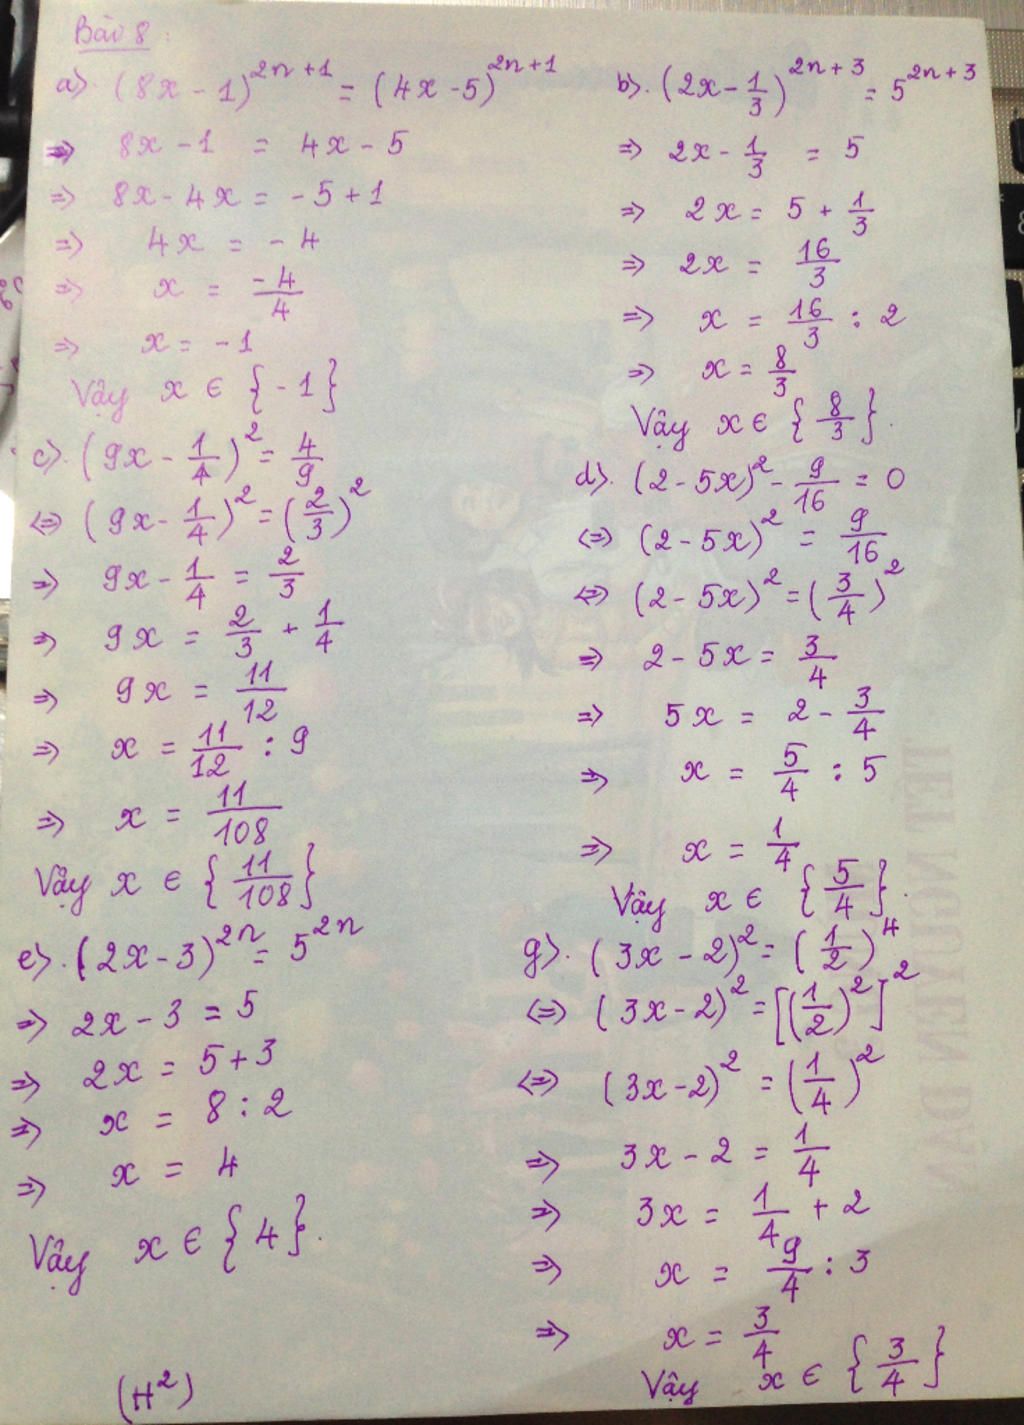 Bài 8:
a). (8x - 1)^{2n+1} = (4x - 5)^{2n+1}
=> 8x - 1 = 4x - 5
=> 8x - 4x = - 5 + 1
=> 4x = - 4
=> x = \frac{-4}{4}
=> x = - 1
Vậy x ∈ { - 1 }
b). (2x - \frac{1}{3})^{2n+3} = 5^{2n+3}
=> 2x - \frac{1}{3} = 5
=> 2x = 5 + \frac{1}{3}
=> 2x = \frac{16}{3}
=> x = \frac{16}{3} : 2
=> x = \frac{8}{3}
Vậy x ∈ { \frac{8}{3} }.
c). (9x - \frac{1}{4})^2 = \frac{4}{9}
<=> (9x - \frac{1}{4})^2 = (\frac{2}{3})^2
=> 9x - \frac{1}{4} = \frac{2}{3}
=> 9x = \frac{2}{3} + \frac{1}{4}
=> 9x = \frac{11}{12}
=> x = \frac{11}{12} : 9
=> x = \frac{11}{108}
Vậy x ∈ { \frac{11}{108} }
d). (2 - 5x)^2 - \frac{9}{16} = 0
<=> (2 - 5x)^2 = \frac{9}{16}
<=> (2 - 5x)^2 = (\frac{3}{4})^2
=> 2 - 5x = \frac{3}{4}
=> 5x = 2 - \frac{3}{4}
=> x = \frac{5}{4} : 5
=> x = \frac{1}{4}
Vậy x ∈ { \frac{5}{4} }.
e). (2x - 3)^{2n} = 5^{2n}
=> 2x - 3 = 5
=> 2x = 5 + 3
=> x = 8 : 2
=> x = 4
Vậy x ∈ { 4 }.
g). (3x - 2)^2 = (\frac{1}{2})^4
<=> (3x - 2)^2 = [(\frac{1}{2})^2]^2
<=> (3x - 2)^2 = (\frac{1}{4})^2
=> 3x - 2 = \frac{1}{4}
=> 3x = \frac{1}{4} + 2
=> x = \frac{9}{4} : 3
=> x = \frac{3}{4}
Vậy x ∈ { \frac{3}{4} }
(H^2)